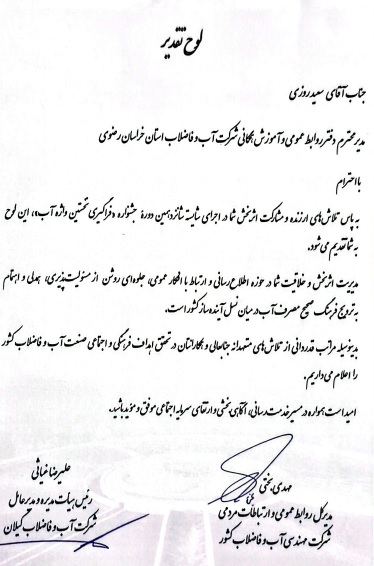 لوح تقدیر
جناب آقای سعید روزی
مدیر محترم دفتر روابط عمومی و آموزش همگانی شرکت آب و فاضلاب استان خراسان رضوی
با احترام
به پاس تلاش‌های ارزنده و مشارکت اثربخش شما در اجرای شایسته شانزدهمین دورهٔ جشنواره «فراگیری نخستین واژه آب»، این لوح
به شما تقدیم می‌شود.
مدیریت اثربخش و خلاقیت شما در حوزه اطلاع‌رسانی و ارتباط با افکار عمومی، جلوه‌ای روشن از مسئولیت‌پذیری، همدلی و اهتمام
به ترویج فرهنگ صحیح مصرف آب در میان نسل آینده‌ساز کشور است.
بدینوسیله مراتب قدردانی از تلاش‌های متعهدانه جنابعالی و همکارانتان در تحقق اهداف فرهنگی و اجتماعی صنعت آب و فاضلاب کشور
را اعلام می‌داریم.
امید است همواره در مسیر خدمت‌رسانی، آگاهی‌بخشی و ارتقای سرمایه اجتماعی موفق و مؤید باشید.
مهدی بختی
مدیرکل روابط عمومی و ارتباطات مردمی
شرکت مهندسی آب و فاضلاب کشور
علیرضا غیاثی
رئیس هیات مدیره و مدیرعامل
شرکت آب و فاضلاب گیلان